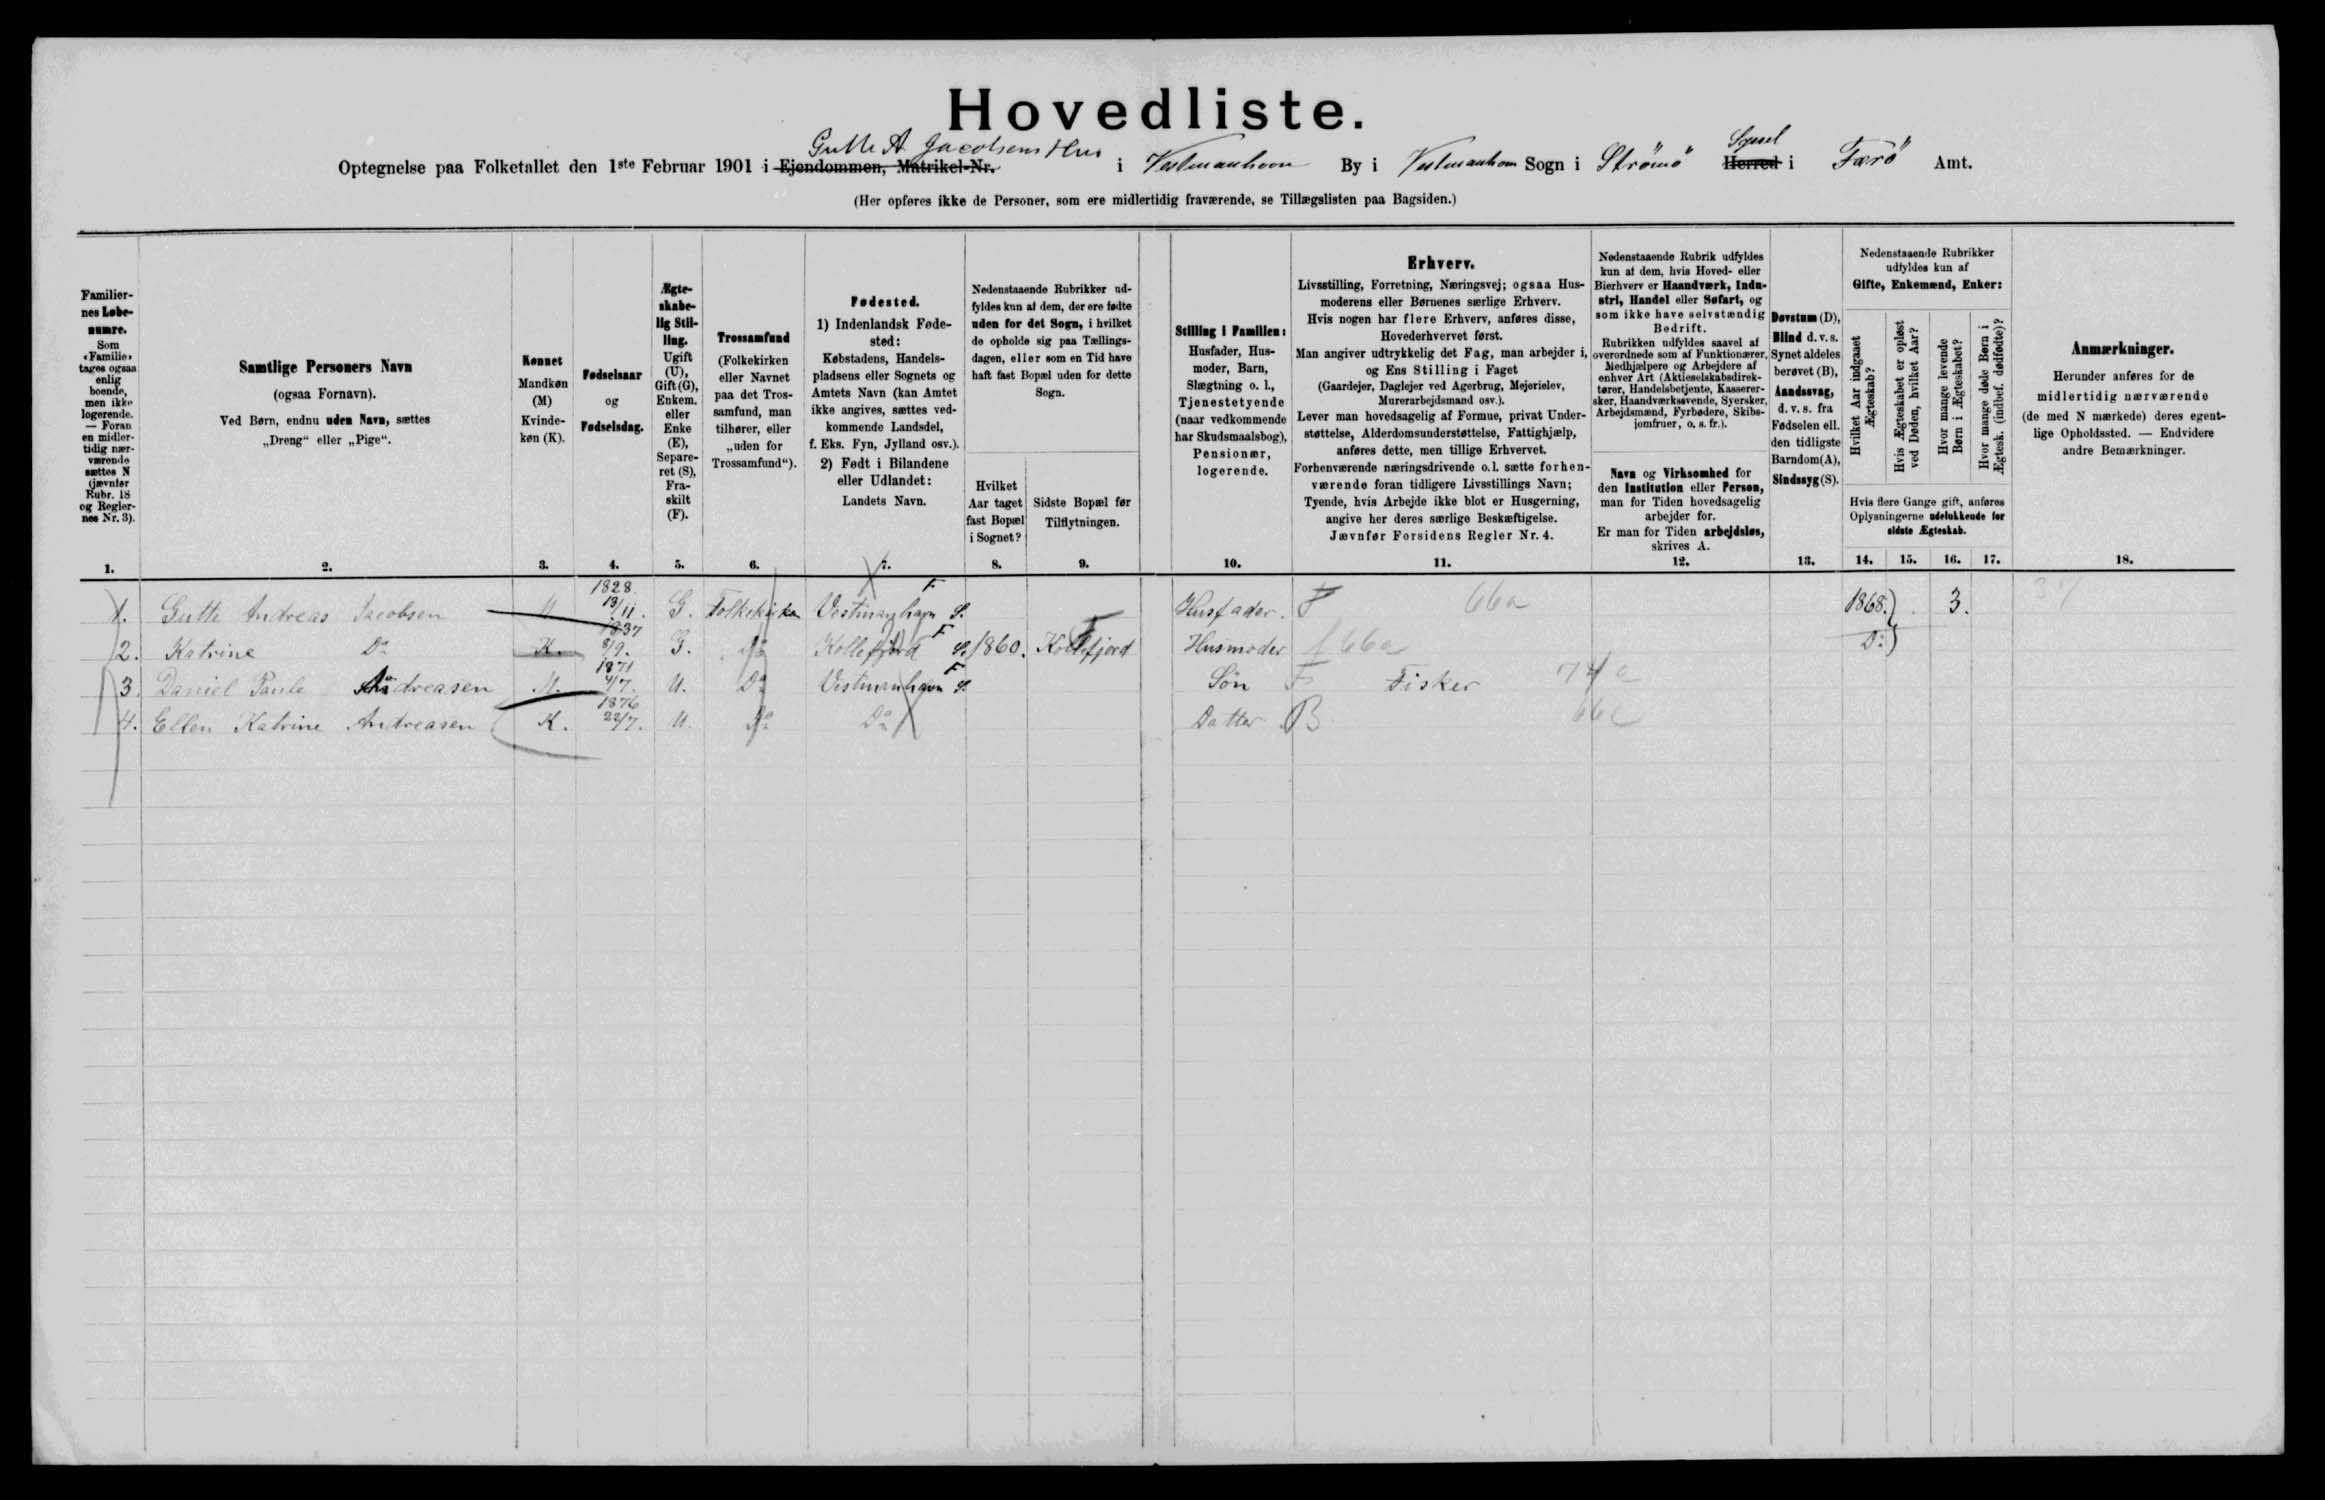 Hovedliste.
Gutte A Jacobsens Hus
Sysel
Optegnelse paa Folketallet den 1ste Februar 1901 i Ejendommen, Matrikel-Nr. i Vestmanhavn By i Vestmanhavn Sogn i Strömö Herred i Færö Amt.
(Her opføres ikke de Personer, som ere midlertidig fraværende, se Tillægslisten paa Bagsiden.)
Familier-
nes Løbe-
numre.
Som
«Familie»
tages ogsaa
enlig
boende,
men ikke
logerende.
— Foran
en midler-
tidig nær-
værende
sættes N
(jævnfør
Rubr. 18
og Regler-
nes Nr. 3).
1.
Samtlige Personers Navn
(ogsaa Fornavn).
Ved Børn, endnu uden Navn, sættes
„Dreng“ eller „Pige“.
2.
Kønnet
Mandkøn
(M)
Kvinde-
køn (K).
3.
Fødselsaar
og
Fødselsdag.
4.
Ægte-
skabe-
lig Stil-
ling.
Ugift
(U),
Gift (G),
Enkem.
eller
Enke
(E),
Separe-
ret (S),
Fra-
skilt
(F).
5.
Trossamfund
(Folkekirken
eller Navnet
paa det Tros-
samfund, man
tilhører, eller
„uden for
Trossamfund“).
6.
Fødested.
1) Indenlandsk Føde-
sted:
Købstadens, Handels-
pladsens eller Sognets og
Amtets Navn (kan Amtet
ikke angives, sættes ved-
kommende Landsdel,
f. Eks. Fyn, Jylland osv.).
2) Født i Bilandene
eller Udlandet:
Landets Navn.
7.
Nedenstaaende Rubrikker ud-
fyldes kun af dem, der ere fødte
uden for det Sogn, i hvilket
de opholde sig paa Tællings-
dagen, eller som en Tid have
haft fast Bopæl uden for dette
Sogn.
Hvilket
Aar taget
fast Bopæl
i Sognet?
8.
Sidste Bopæl før
Tilflytningen.
9.
Stilling i Familien:
Husfader, Hus-
moder, Barn,
Slægtning o. l.,
Tjenestetyende
(naar vedkommende
har Skudsmaalsbog),
Pensionær,
logerende.
10.
Erhverv.
Livsstilling, Forretning, Næringsvej; ogsaa Hus-
moderens eller Børnenes særlige Erhverv.
Hvis nogen har flere Erhverv, anføres disse,
Hovederhvervet først.
Man angiver udtrykkelig det Fag, man arbejder i,
og Ens Stilling i Faget
(Gaardejer, Daglejer ved Agerbrug, Mejerielev,
Murerarbejdsmand osv.).
Lever man hovedsagelig af Formue, privat Under-
støttelse, Alderdomsunderstøttelse, Fattighjælp,
anføres dette, men tillige Erhvervet.
Forhenværende næringsdrivende o. l. sætte forhen-
værende foran tidligere Livsstillings Navn;
Tyende, hvis Arbejde ikke blot er Husgerning,
angive her deres særlige Beskæftigelse.
Jævnfør Forsidens Regler Nr. 4.
11.
Nedenstaaende Rubrik udfyldes
kun af dem, hvis Hoved- eller
Bierhverv er Haandværk, Indu-
stri, Handel eller Søfart, og
som ikke have selvstændig
Bedrift.
Rubrikken udfyldes saavel af
overordnede som af Funktionærer,
Medhjælpere og Arbejdere af
enhver Art (Aktieselskabsdirek-
tører, Handelsbetjente, Kasserer-
sker, Haandværkssvende, Syersker,
Arbejdsmænd, Fyrbødere, Skibs-
jomfruer, o. s. fr.).
Navn og Virksomhed for
den Institution eller Person,
man for Tiden hovedsagelig
arbejder for.
Er man for Tiden arbejdsløs,
skrives A.
12.
Døvstum (D),
Blind d. v. s.
Synet aldeles
berøvet (B),
Aandssvag,
d. v. s. fra
Fødselen ell.
den tidligste
Barndom (A),
Sindssyg (S).
13.
Nedenstaaende Rubrikker
udfyldes kun af
Gifte, Enkemænd, Enker:
Hvilket Aar indgaaet
Ægteskab?
Hvis Ægteskabet er opløst
ved Døden, hvilket Aar?
Hvor mange levende
Børn i Ægteskabet?
Hvor mange døde Børn i
Ægtesk. (indbef. dødfødte)?
Hvis flere Gange gift, anføres
Oplysningerne udelukkende for
sidste Ægteskab.
14. 15. 16. 17.
Anmærkninger.
Herunder anføres for de
midlertidig nærværende
(de med N mærkede) deres egent-
lige Opholdssted. — Endvidere
andre Bemærkninger.
18.
1. Gutte Andreas Jacobsen M 1828 13/11. G. Folkekirken Vestmanhavn S. F Husfader. F 66a 1868. 3.
2. Katrine Do K. 1837 8/9. G. Do Kollefjord S. F 1860. Kollefjord F Husmoder f 66a Do
3. Daniel Paule Andreasen M. 1871 4/7. U. Do Vestmanhavn S. F Søn F Fisker 74a
4. Ellen Katrine Andreasen K. 1876 22/7. U. Do Do Datter B. 66c